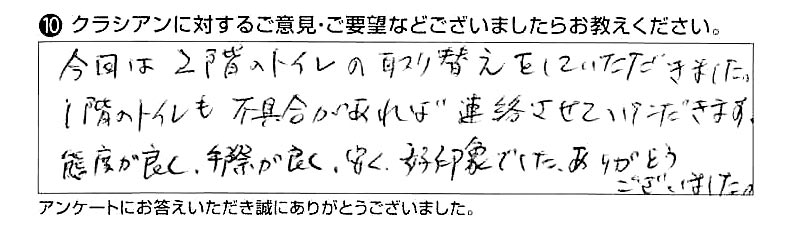 ⑩ クラシアンに対するご意見・ご要望などございましたらお教えください。
今回は2階のトイレの取り替えをしていただきました。
1階のトイレも不具合があれば連絡させていただきます。
態度が良く、手際が良く、安く、好印象でした。ありがとう
ございました。
アンケートにお答えいただき誠にありがとうございました。